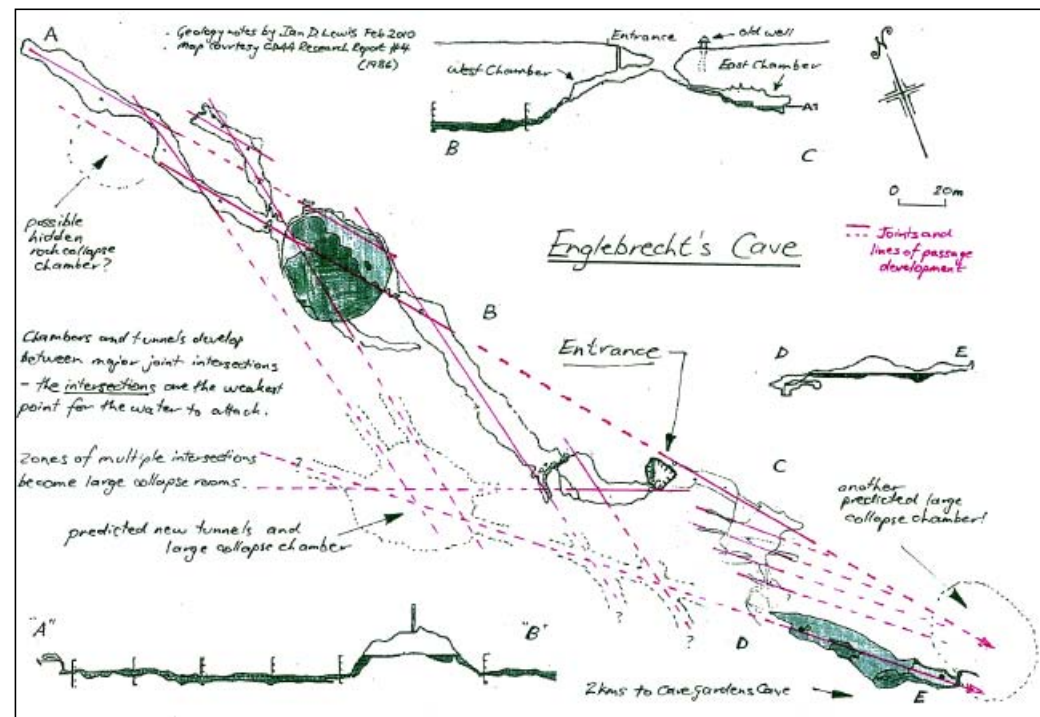 A
. Geology notes by Ian D. Lewis Feb 2010
. Map courtesy CDAA Research Report #4
(1986)
Entrance
old well
West Chamber
East Chamber
A1
B
C
N
0 20m
Joints and
lines of passage
development
possible
hidden
rock collapse
chamber?
Englebrecht's Cave
B
Entrance
D
E
Chambers and tunnels develop
between major joint intersections
- the intersections are the weakest
point for the water to attack.
Zones of multiple intersections
become large collapse rooms.
C
another
predicted large
collapse chamber!
predicted new tunnels and
large collapse chamber
?
?
?
?
"A"
"B"
D
2kms to Cave Gardens Cave
E